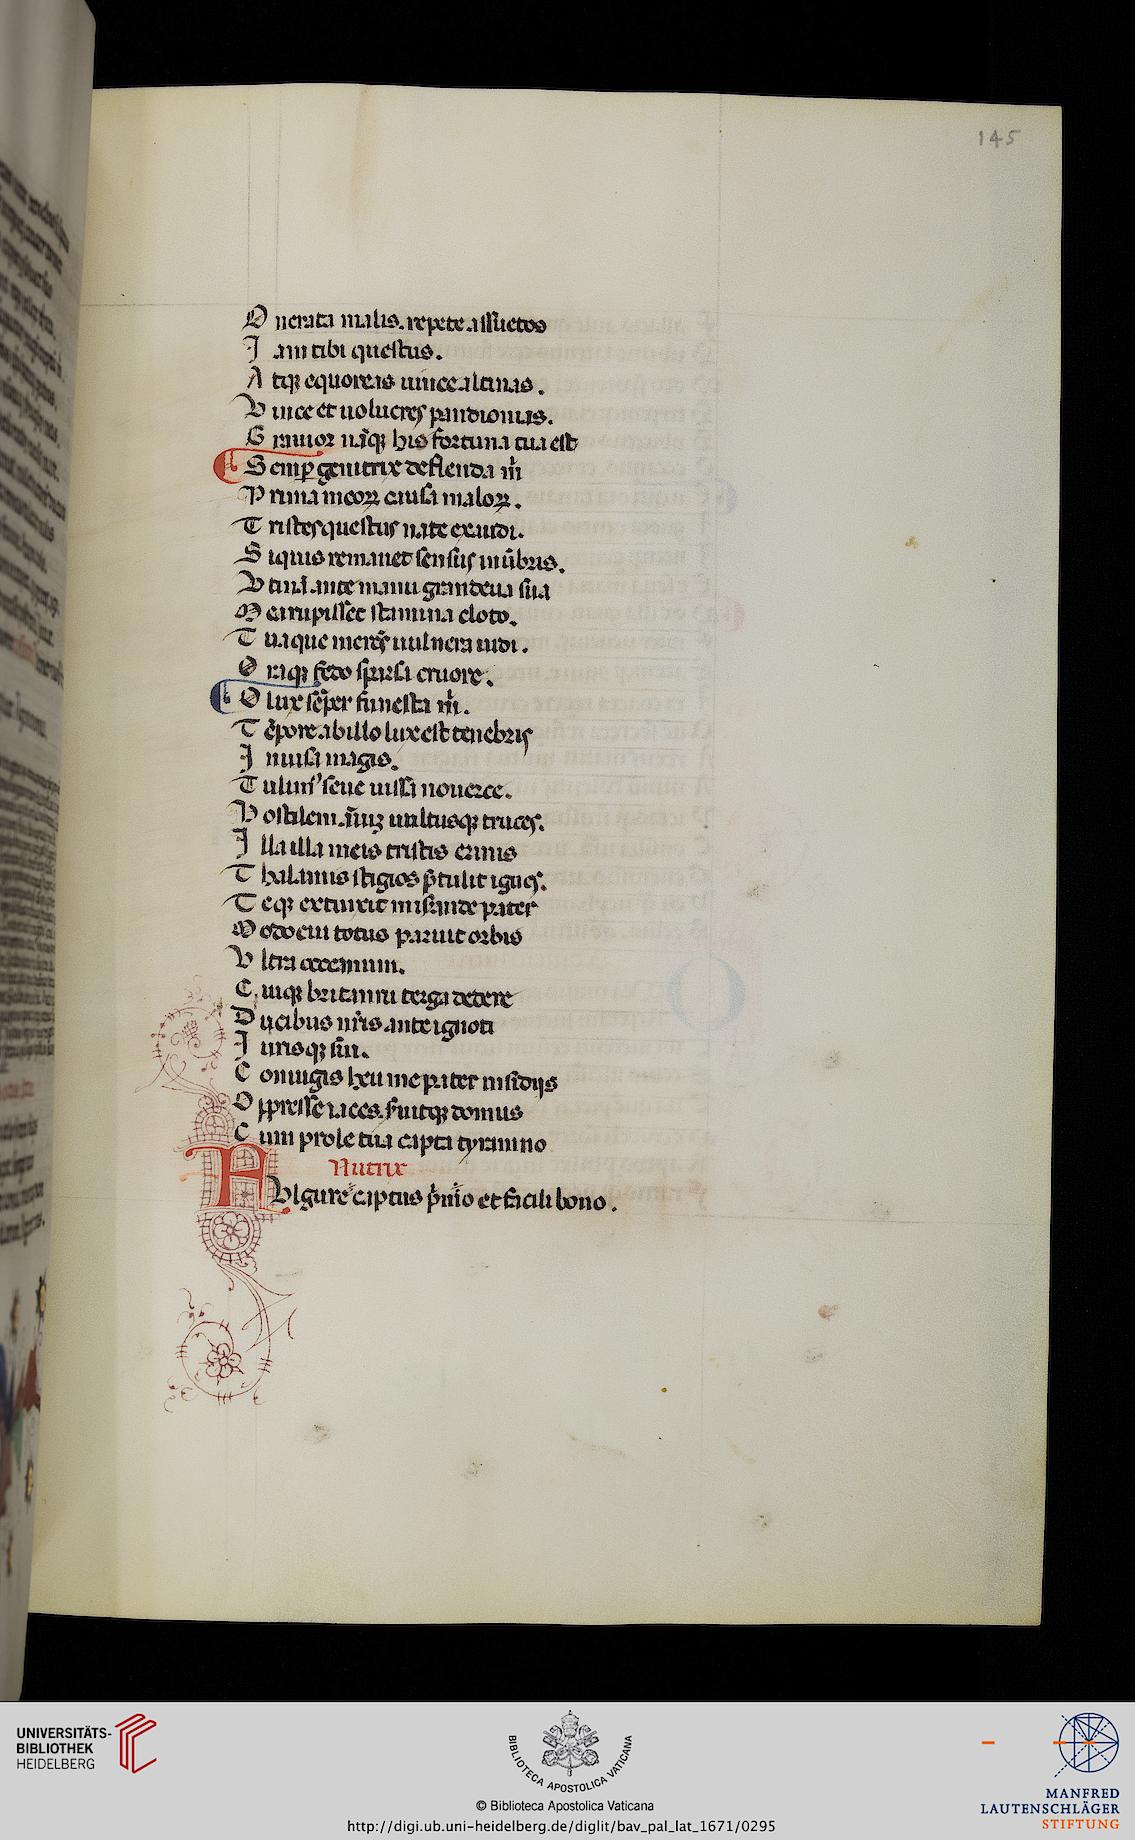 145
Onerata malis. repete assuetos
Iam tibi questus.
Atq; equoreas uince alcinas.
Vince et uolucres pandionias.
Grauior nãq; his fortuna tua est
Semp genitrix deflenda m̃
Prima meoꝝ causa maloꝝ.
Tristes questus nate exaudi.
Siquis remanet sensus in ũbris.
Vtinã ante manu grandeua sua
Mea rupisset stamina cloto.
Tua que merẽs uulnera uidi.
Oraq; fedo sparsa cruore.
O lux sẽper funesta m̃.
Tẽpore ab illo lux est tenebris
Inuisa magis.
Tulim' seue iussa nouerce.
Hostilem aĩuz uultusq; truces.
Illa illa meis tristis erinis
Thalamis stigios ptulit ignes.
Teq; extinxit miserande pater
Modo cui totus paruit orbis
Vltra oceanum.
Cuiq; britanni terga dedere
Ducibus nr̃is ante ignoti
Iurisq; sui.
Coniugis heu me pater insidijs
Oppresse iaces. seruitq; domus
Cum prole tua capta tyranno
Nutrix
FVlgure captus pimo et facili bono.
UNIVERSITÄTS-
BIBLIOTHEK
HEIDELBERG
BIBLIOTECA APOSTOLICA VATICANA
© Biblioteca Apostolica Vaticana
http://digi.ub.uni-heidelberg.de/diglit/bav_pal_lat_1671/0295
MANFRED
LAUTENSCHLÄGER
STIFTUNG